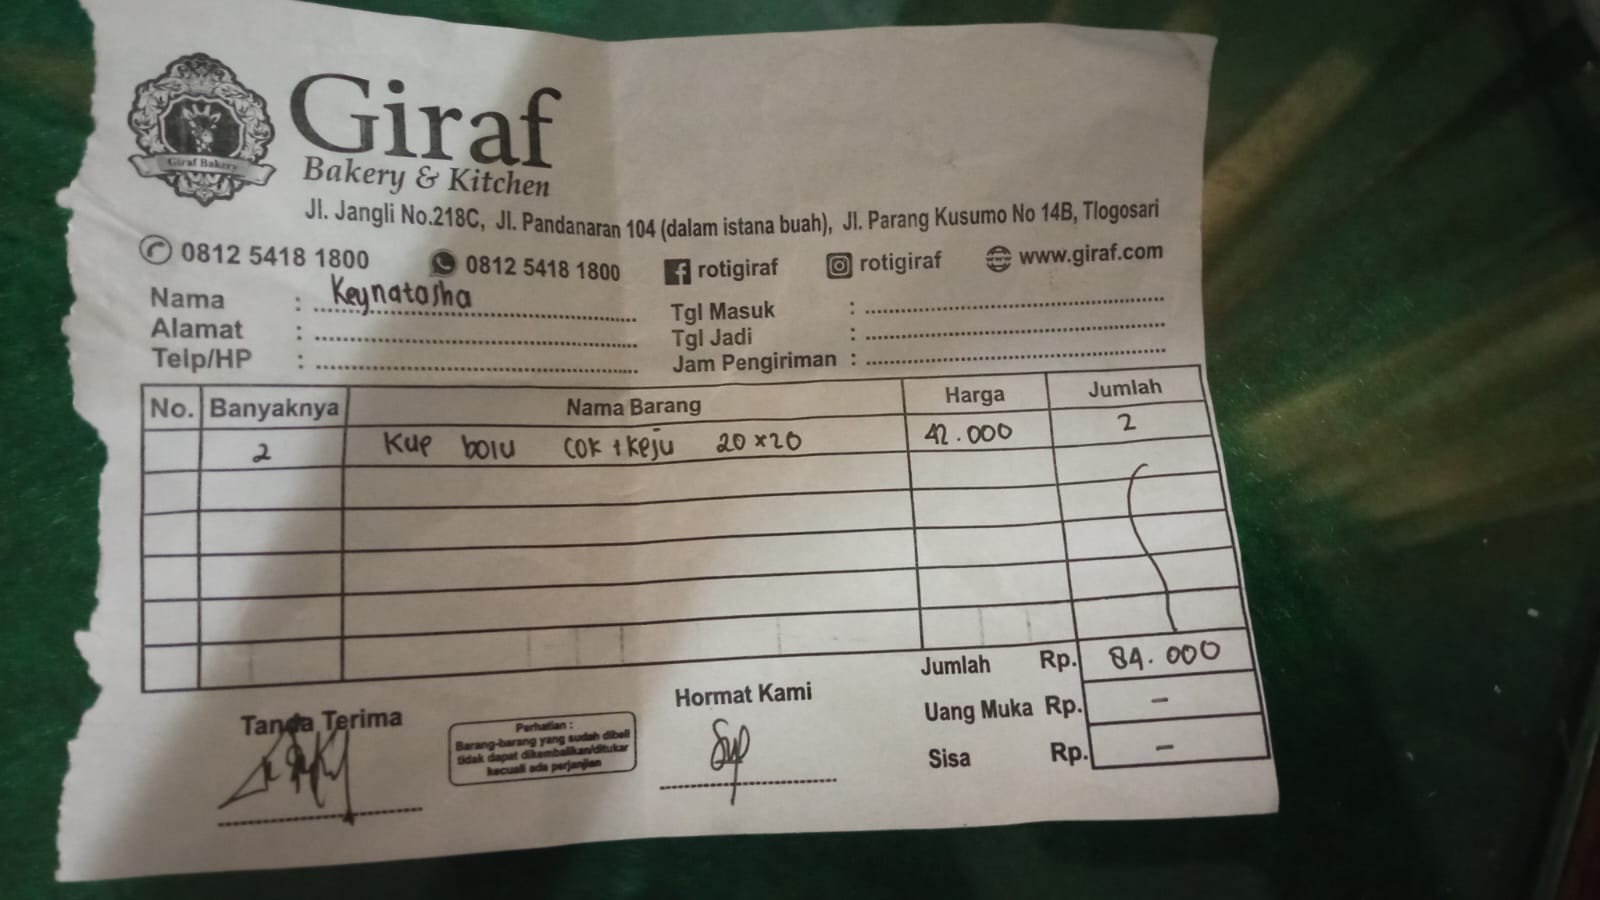 Giraf Bakery
Giraf
Bakery & Kitchen
Jl. Jangli No.218C, Jl. Pandanaran 104 (dalam istana buah), Jl. Parang Kusumo No 14B, Tlogosari
0812 5418 1800 0812 5418 1800 rotigiraf rotigiraf www.giraf.com
Nama : Keynatasha
Alamat :
Telp/HP :
Tgl Masuk :
Tgl Jadi :
Jam Pengiriman :
No. Banyaknya Nama Barang Harga Jumlah
2 Kue bolu cok + keju 20x20 42.000 2
Jumlah Rp. 84.000
Uang Muka Rp. -
Sisa Rp. -
Tanda Terima
Perhatian :
Barang-barang yang sudah dibeli
tidak dapat dikembalikan/ditukar
kecuali ada perjanjian
Hormat Kami